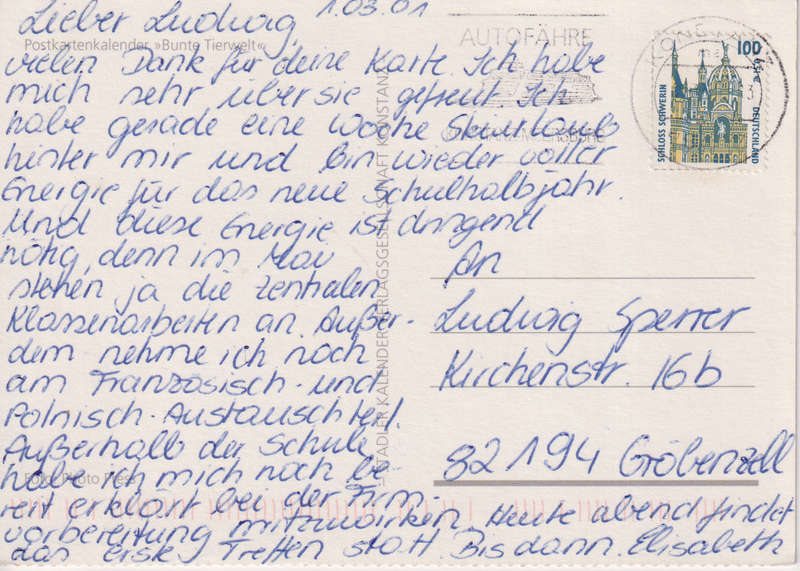 1.03.01
Lieber Ludwig,
Postkartenkalender »Bunte Tierwelt«
vielen Dank für deine Karte. Ich habe
mich sehr über sie gefreut. Ich
habe gerade eine Woche Skiurlaub
hinter mir und bin wieder voller
Energie für das neue Schulhalbjahr.
Und diese Energie ist dringend
nötig, denn im Mai
stehen ja die zentralen
Klassenarbeiten an. Außer-
dem nehme ich noch
am Französisch- und
Polnisch-Austausch teil.
Außerhalb der Schule
habe ich mich noch be
reit erklärt bei der Firm-
vorbereitung mitzuwirken. Heute abend findet
das erste Treffen statt. Bis dann. Elisabeth
Foto: Photo Press
STADLER KALENDER VERLAGSGESELLSCHAFT KONSTANZ
AUTOFÄHRE
100
DEUTSCHLAND
SCHLOSS SCHWERIN
An
Ludwig Sperrer
Kirchenstr. 16b
82194 Gröbenzell